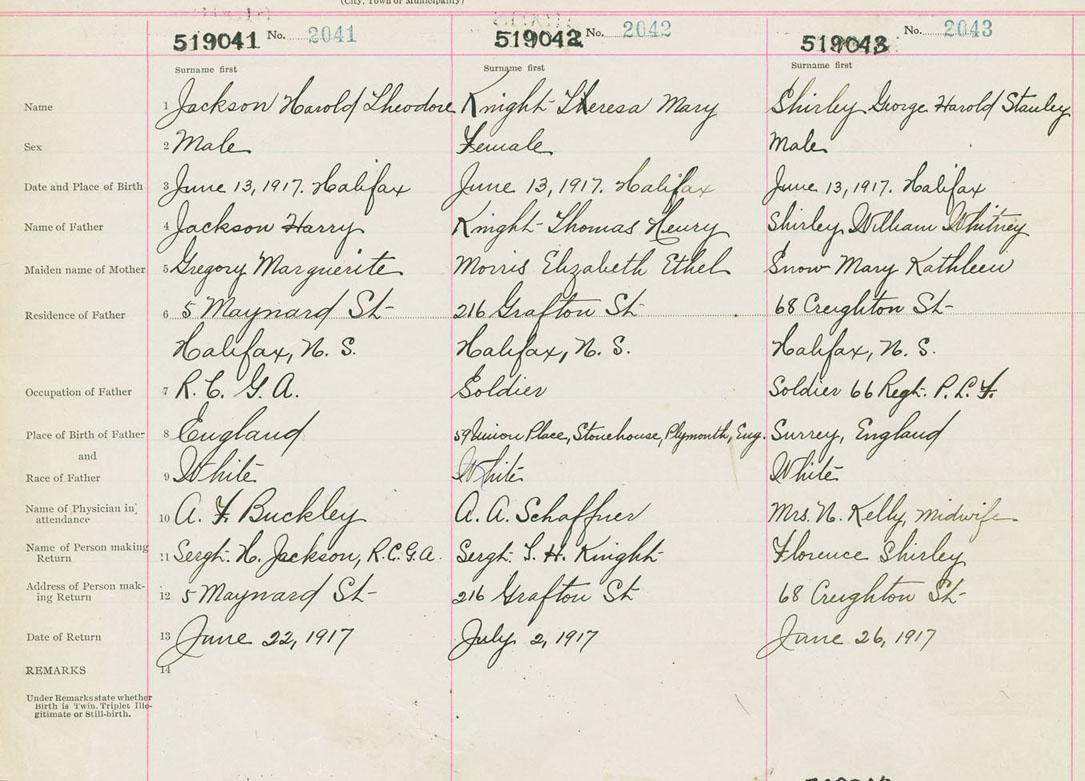 (City, Town or Municipality)
519041 No. 2041 519042 No. 2042 519043 No. 2043
Surname first Surname first Surname first
Name 1 Jackson Harold Theodore Knight Theresa Mary Shirley George Harold Stanley
Sex 2 Male Female Male
Date and Place of Birth 3 June 13, 1917. Halifax June 13, 1917. Halifax June 13, 1917. Halifax
Name of Father 4 Jackson Harry Knight Thomas Henry Shirley William Whitney
Maiden name of Mother 5 Gregory Marguerite Morris Elizabeth Ethel Snow Mary Kathleen
Residence of Father 6 5 Maynard St 216 Grafton St 68 Creighton St
Halifax, N. S. Halifax, N. S. Halifax, N. S.
Occupation of Father 7 R. C. G. A. Soldier Soldier 66 Regt. P. L. F.
Place of Birth of Father 8 England 59 Union Place, Stonehouse, Plymonth, Eng. Surrey, England
and
Race of Father 9 White White White
Name of Physician in attendance 10 A. F. Buckley A. A. Schaffner Mrs. N. Kelly, Midwife
Name of Person making Return 11 Sergt. H. Jackson, R.C.G.A. Sergt. T. H. Knight Florence Shirley
Address of Person mak- ing Return 12 5 Maynard St 216 Grafton St 68 Creighton St
Date of Return 13 June 22, 1917 July 2, 1917 June 26, 1917
REMARKS 14
Under Remarks state whether
Birth is Twin, Triplet Ille-
gitimate or Still-birth.